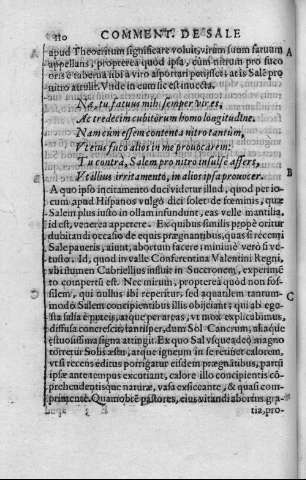 110 COMMENT. DE SALE
apud Theocritum significare voluit, virum suum fatuum
appellans, propterea quod ipsa, cùm nitrum pro fuco
oris è taberna sibi à viro asportari petijsset, at is Salē pro
nitro attulit. Vnde in eum sic est inuecta.
Næ, tu fatuus mihi semper vir es,
Ac tredecim cubitorum homo longitudine.
Nam cùm essem contenta nitro tantùm,
Vt eius fuco alios in me prouocarem:
Tu contrà, Salem pro nitro insulsè affers,
Vt illius irritamento, in alios ipsa prouocer.
A quo ipso incitamento duci videtur illud, quod per io-
cum apud Hispanos vulgò dici solet de fœminis, quæ
Salem plus iusto in ollam infundunt, eas velle mantilia,
id est, venerea appetere. Ex quibus similis propè oritur
dubitandi occasio de equis prægnantibus, quæ si recenti
Sale paneris, aiunt, abortum facere; minimè verò si ve-
tusto. Id, quod in valle Conferentina Valentini Regni,
vbi flumen Cabriellius influit in Sucronem, experimē
to conpertū est. Nec mirum, propterea quòd non fos-
silem, qui nullus ibi reperitur, sed aquatilem tantum-
modo Salem concipientibus illis obijciant; qui ab ege-
sta salsa è puteis, atque per areas, vt mox explicabimus,
diffusa concrescit; tantisper, dum Sol Cancrum, aliaque
æstuosissima signa attingit. Ex quo Sal vsqueadeò magno
torretur Solis æstu, atque igneum in se retinet calorem,
vt si recens editus porrigatur eisdem prægnātibus, partū
ipsæ ante tempus excutiant, calore illo concipientis cō-
prehendentisque naturæ, vasa exsiccante, & quasi com-
primente. Quamobrē pastores, eius vitandi aborūs gra-
tia, pro-
A
B
C